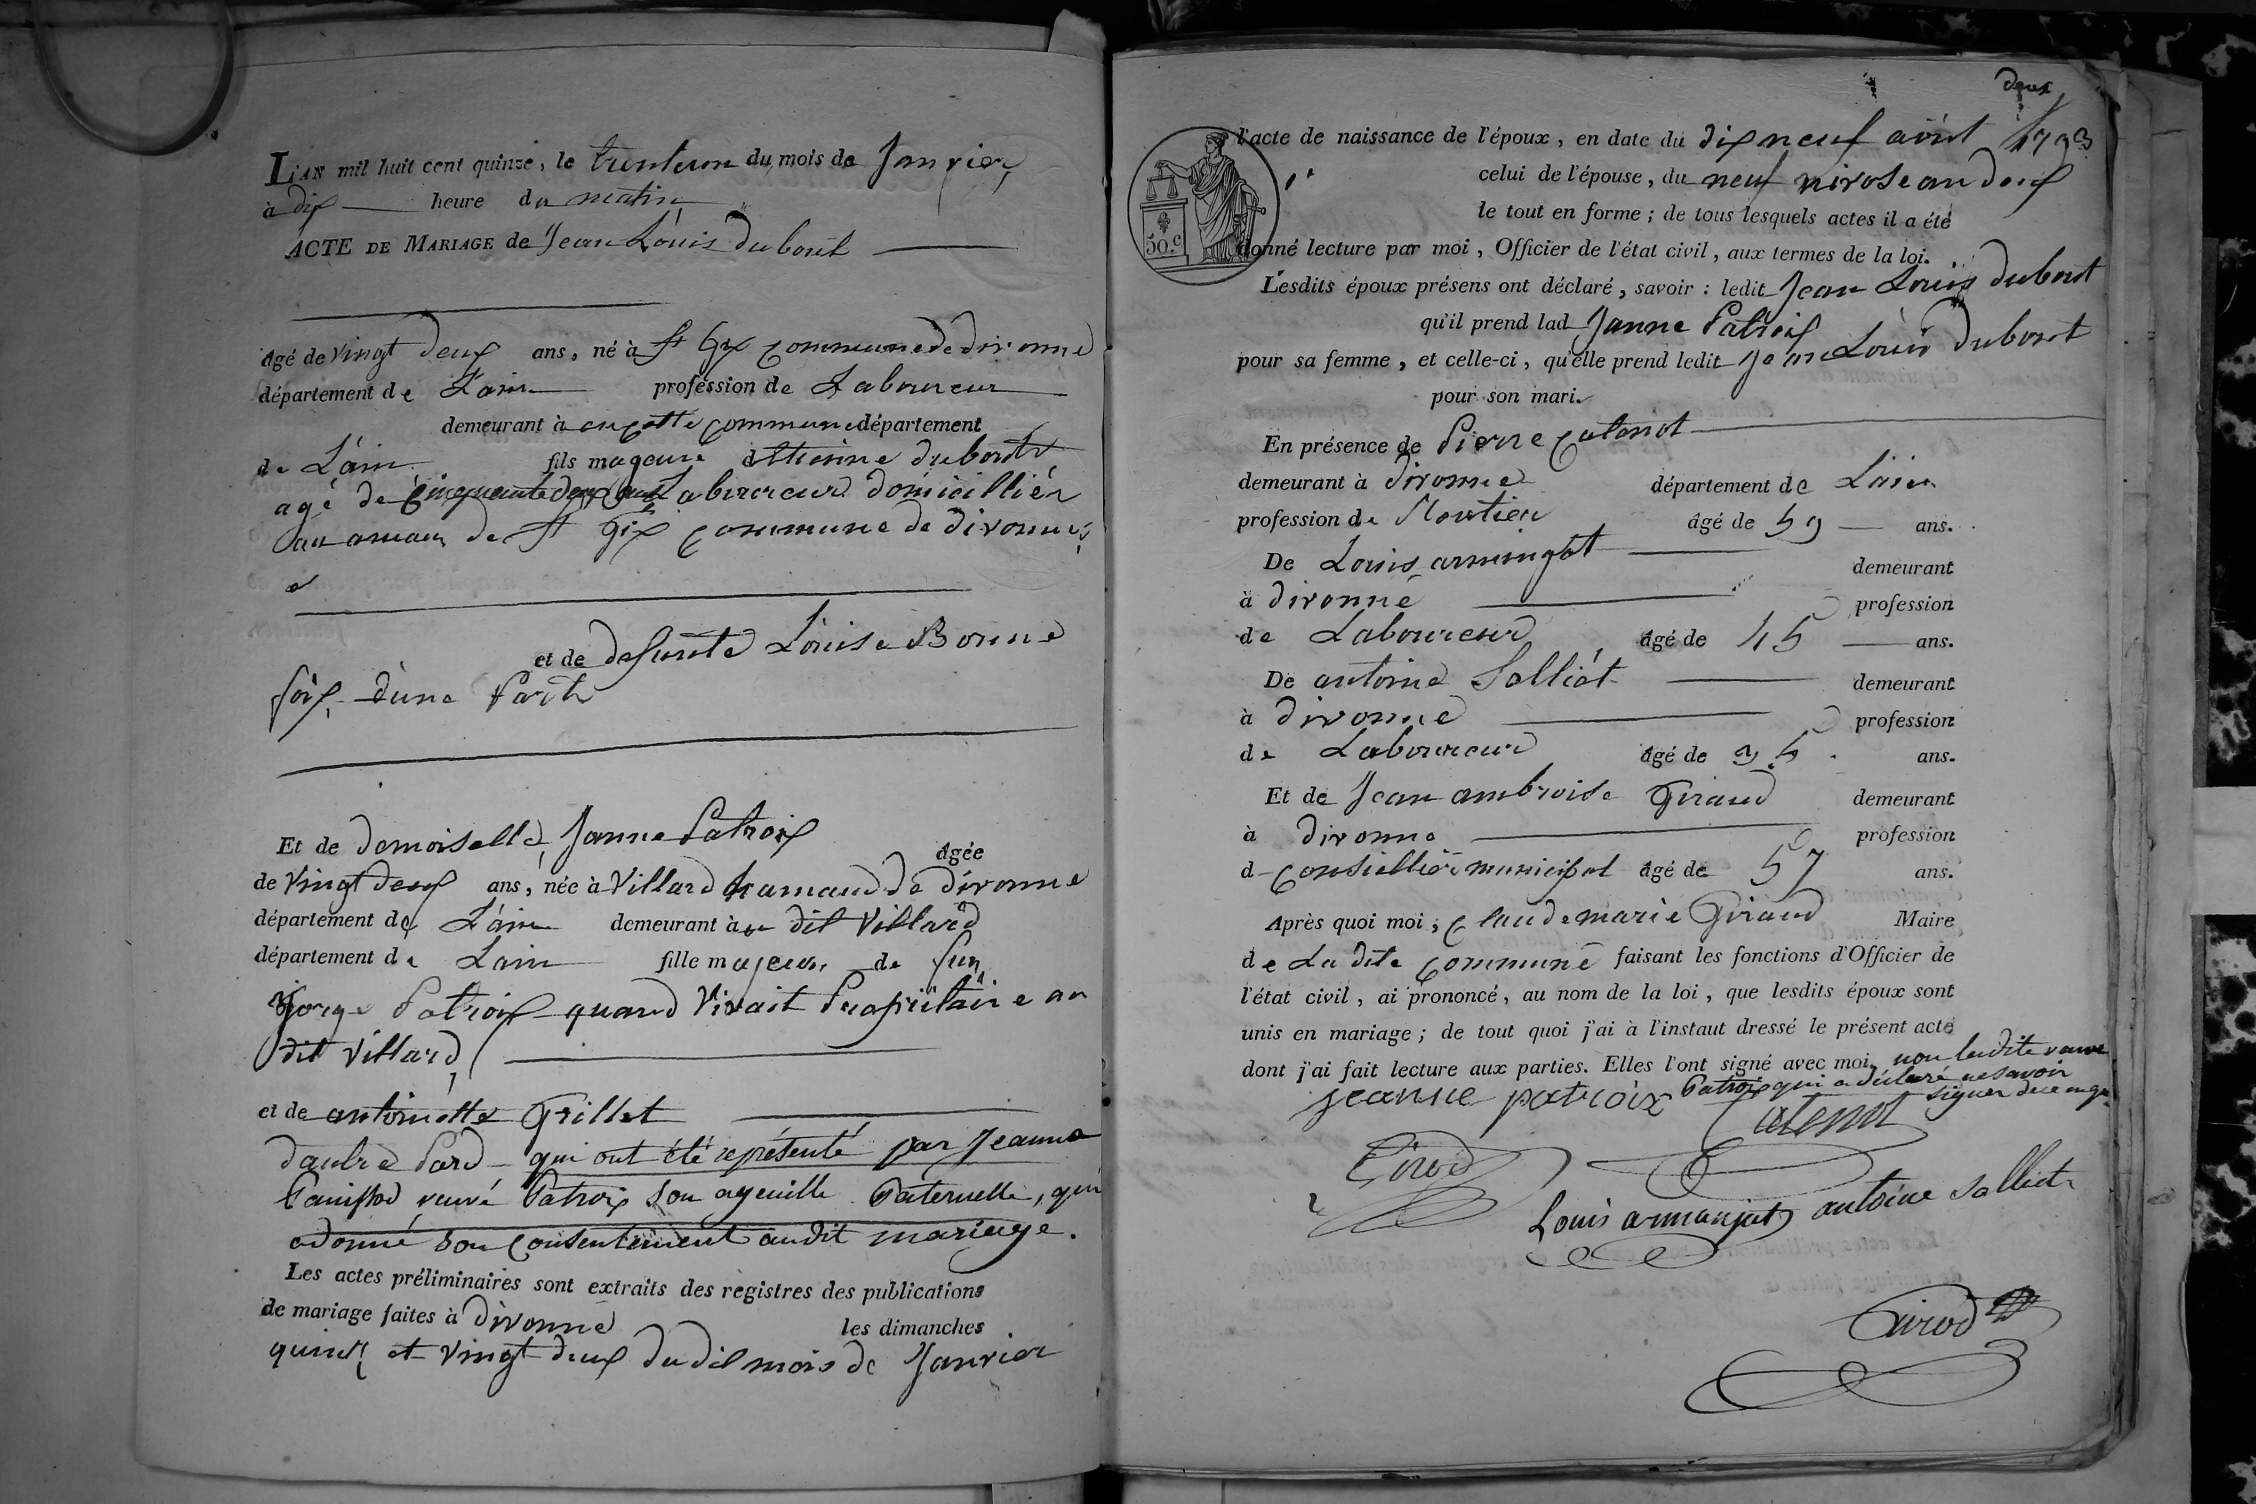 L'AN mil huit cent quinze, le trenteun du mois de Janvier
à dix heure du matin
ACTE DE MARIAGE de Jean Louis Dubout
âgé de vingt deux ans, né à St Gix commune de divonne
département de L'ain profession de Laboureur
demeurant à commune département
de L'ain fils majeur d Etienne dubout
agé de cinquante deux ans Laboureur domicillier
au amau de St Gix commune de divonne
et de defunte Louise Bonne
foix d'une Part
Et de demoiselle Janne Patroix
âgée
de vingt deux ans, née à Villard hamaud de divonne
département de L'ain demeurant à au dit Villard
département de L'ain fille majeur de fun
Gorge Patroix quand Vivait Propriétaire au
dit Villard
et de antoinette Grillet
d'autre Pard qui ont été représenté par Jeanne
veuve Patroix son ayeuille Paternelle, qui
a donné son consentement audit mariage.
Les actes préliminaires sont extraits des registres des publications
de mariage faites à divonne les dimanches
quinze et vingt deux du dit mois de Janvier
deux
l'acte de naissance de l'époux, en date du dix neuf avril 1793
celui de l'épouse, du neuf nivose an deux
le tout en forme ; de tous lesquels actes il a été
donné lecture par moi, Officier de l'état civil, aux termes de la loi.
50.c
Lesdits époux présens ont déclaré, savoir : ledit Jean Louis dubout
qu'il prend lad Janne Patroix
pour sa femme, et celle-ci, qu'elle prend ledit Jean Louis Dubout
pour son mari.
En présence de Pierre Catenot
demeurant à divonne département de L'ain
profession de âgé de 59 ans.
De Louis arminjot demeurant
à divonne profession
de Laboureur âgé de 45 ans.
De antoine Salliet demeurant
à divonne profession
de Laboureur âgé de 35 ans.
Et de Jean ambroise Giraud demeurant
à divonne profession
d consiellier municipal âgé de 57 ans.
Après quoi moi, claude marie Giraud Maire
de La dite commune faisant les fonctions d'Officier de
l'état civil, ai prononcé, au nom de la loi, que lesdits époux sont
unis en mariage ; de tout quoi j'ai à l'instaut dressé le présent acte
dont j'ai fait lecture aux parties. Elles l'ont signé avec moi, non ladite veuve
Patroix qui a déclaré ne savoir
signer de ce enquis
jeanne patroix
Catenot
Girod
Louis armanjat antoine salliet
Girod